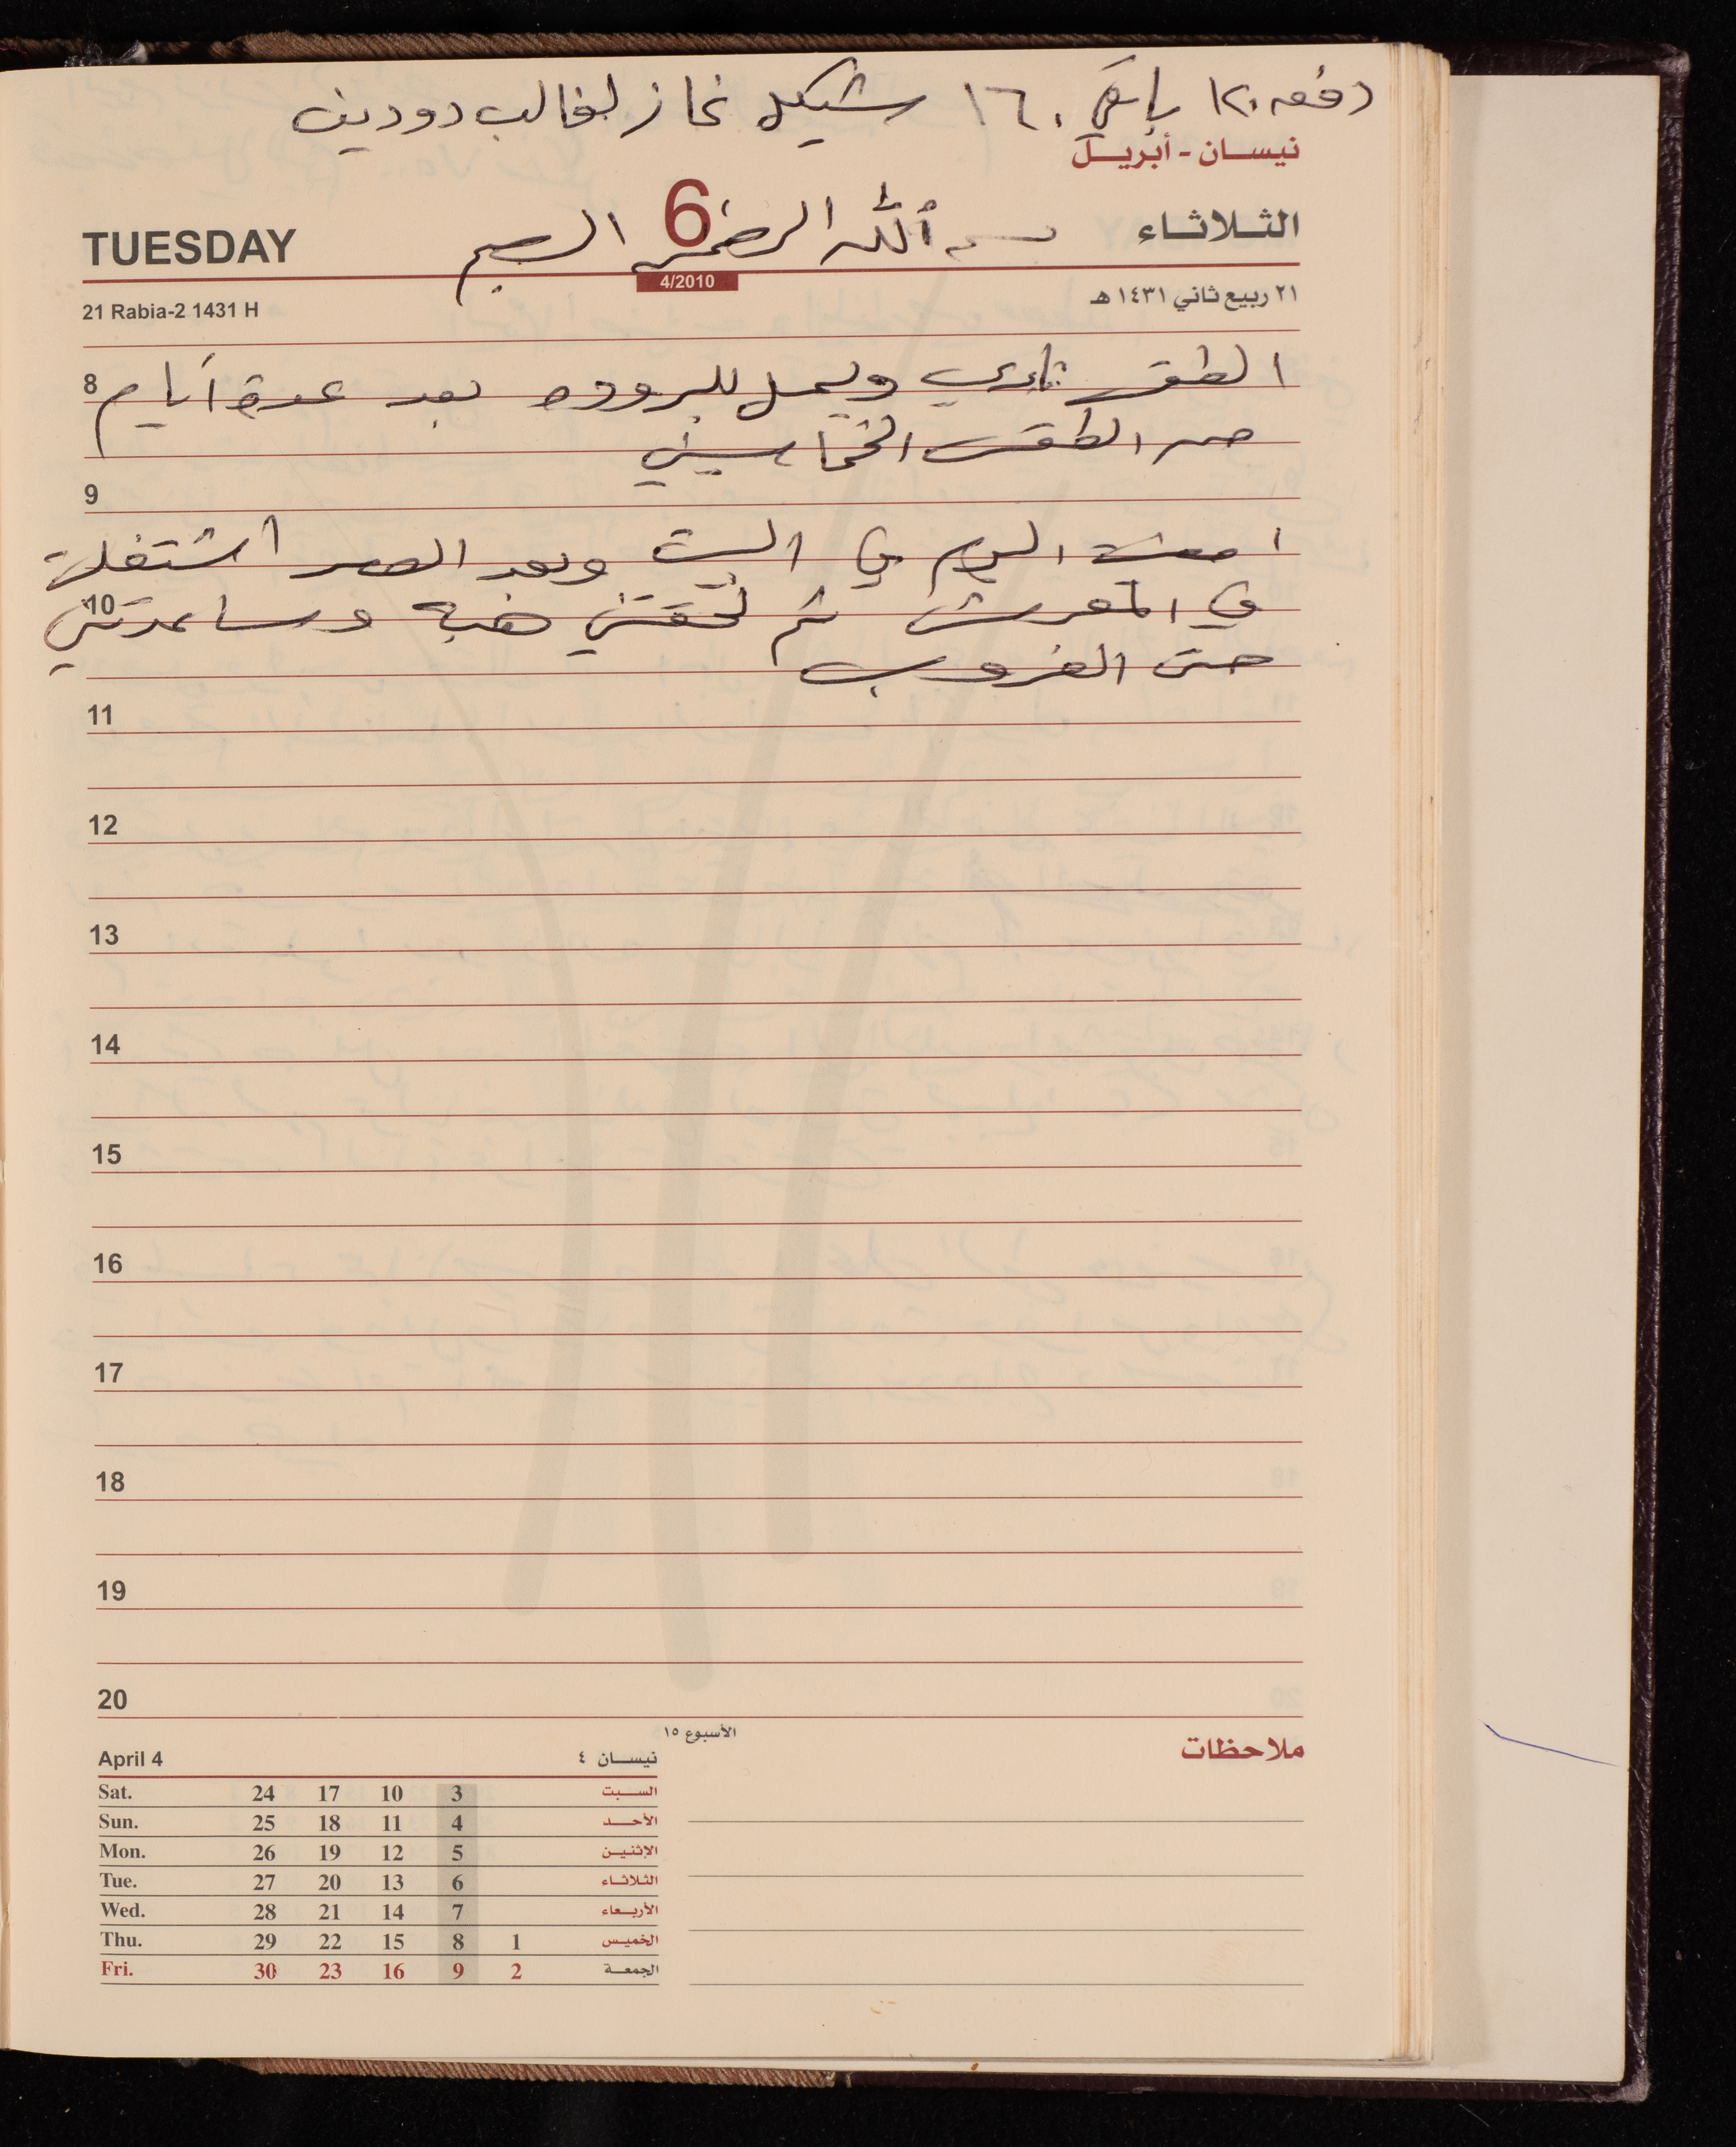 دفعه ١٢٠ باقي ١٦٠ شيكل غاز لغالب دودين
نيسان - أبريل
TUESDAY 6 الثلاثاء
بسم الله الرحمن الرحيم
4/2010
21 Rabia-2 1431 H ٢١ ربيع ثاني ١٤٣١ هـ
8 الطقس ويميل للبروده بعد عدة أيام
من الطقس الخماسيني
9
امضيت اليوم في البيت وبعد العصر اشتغلت
10 في المعرش ثم لحقتني هبه وساعدتني
حتى الغروب
11
12
13
14
15
16
17
18
19
20
الأسبوع ١٥
ملاحظات
April 4 نيسان ٤
Sat. 24 17 10 3 السبت
Sun. 25 18 11 4 الأحد
Mon. 26 19 12 5 الإثنين
Tue. 27 20 13 6 الثلاثاء
Wed. 28 21 14 7 الأربعاء
Thu. 29 22 15 8 1 الخميس
Fri. 30 23 16 9 2 الجمعة